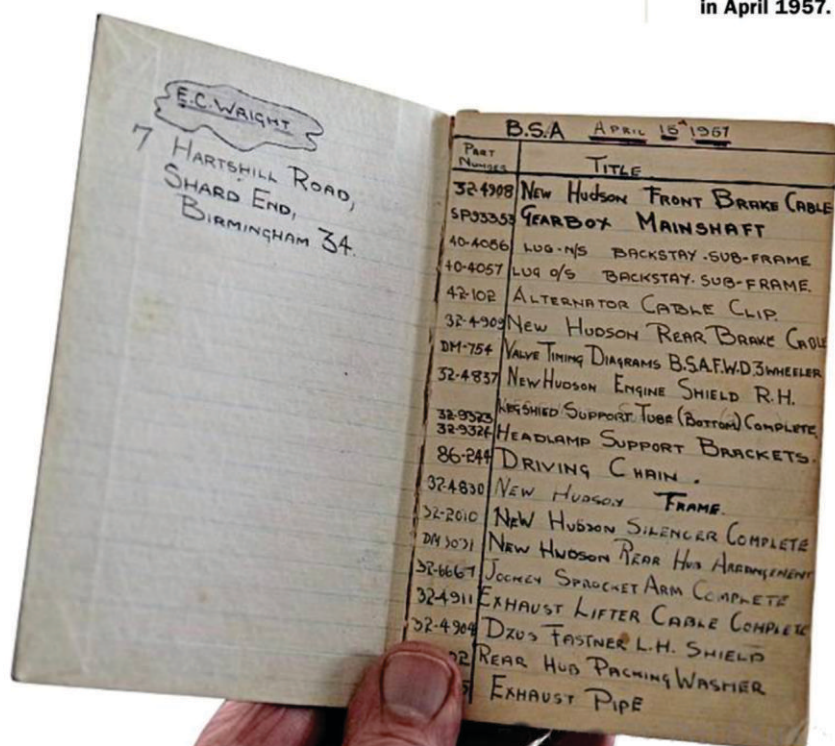 in April 1957.
E.C. WRIGHT
7 HARTSHILL ROAD,
SHARD END,
BIRMINGHAM 34.
B.S.A APRIL 15th 1957
PART NUMBER TITLE
32-4908 NEW HUDSON FRONT BRAKE CABLE
SP93353 GEARBOX MAINSHAFT
40-4056 LUG-N/S BACKSTAY-SUB-FRAME
40-4057 LUG O/S BACKSTAY-SUB-FRAME.
42-102 ALTERNATOR CABLE CLIP.
32-4909 NEW HUDSON REAR BRAKE CABLE
DM-754 VALVE TIMING DIAGRAMS B.S.A.F.W.D.3 WHEELER
32-4837 NEW HUDSON ENGINE SHIELD R.H.
32-9323 SUPPORT TUBE (BOTTOM) COMPLETE.
32-9324 HEADLAMP SUPPORT BRACKETS.
86-244 DRIVING CHAIN.
32-4830 NEW HUDSON FRAME.
32-2010 NEW HUDSON SILENCER COMPLETE
NEW HUDSON REAR HUB ARRANGEMENT
32-6667 JOCKEY SPROCKET ARM COMPLETE
32-4911 EXHAUST LIFTER CABLE COMPLETE
32-4904 DZUS FASTNER L.H. SHIELD
REAR HUB PACKING WASHER
EXHAUST PIPE